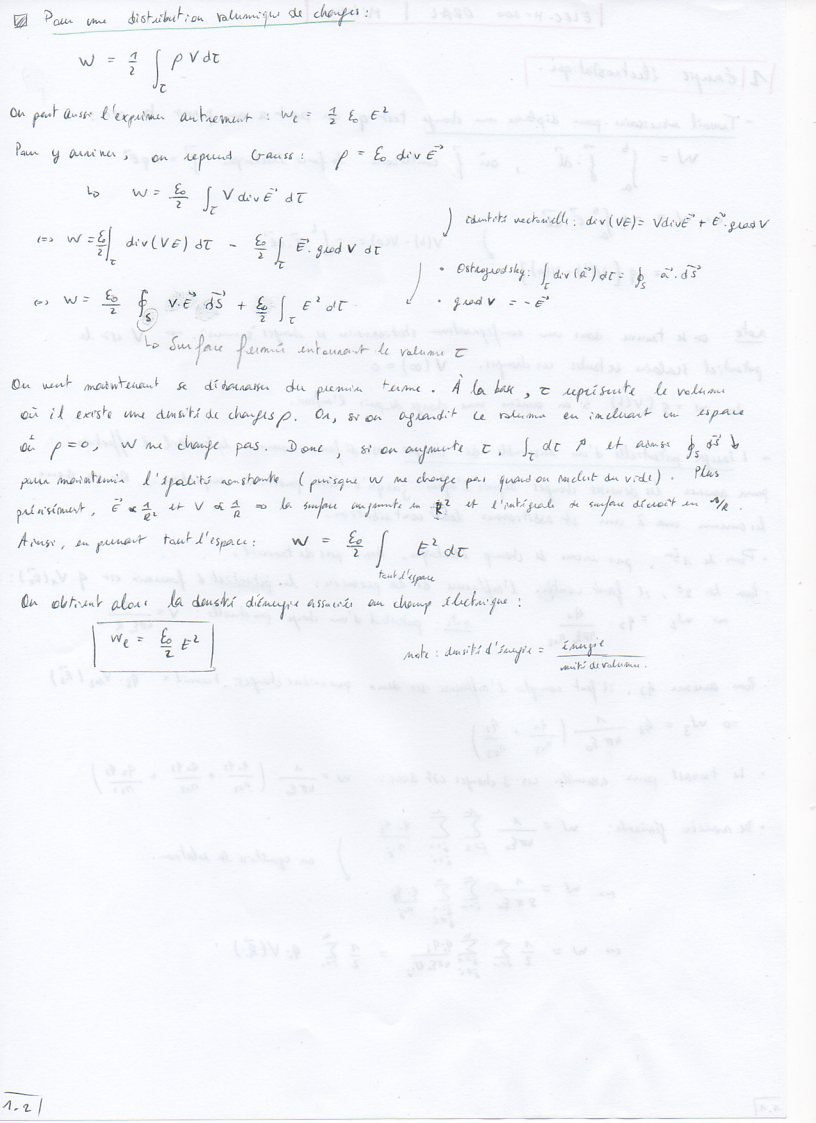 Pour une distribution volumique de charges :
W = 1/2 ∫_τ ρ V dτ
On peut aussi l'exprimer autrement : w_e = 1/2 ε₀ E²
Pour y arriver, on reprend Gauss : ρ = ε₀ div E⃗
↳ W = ε₀/2 ∫_τ V div E⃗ dτ
identité vectorielle : div(VE) = V div E⃗ + E⃗·grad V
⇔ W = ε₀/2 ∫_τ div(VE) dτ - ε₀/2 ∫_τ E⃗·grad V dτ
• Ostrogradsky : ∫_τ div(a⃗) dτ = ∮_S a⃗·dS⃗
• grad V = -E⃗
⇔ W = ε₀/2 ∮_S V·E⃗ dS⃗ + ε₀/2 ∫_τ E² dτ
↳ Surface fermée entourant le volume τ
On veut maintenant se débarrasser du premier terme. À la base, τ représente le volume
où il existe une densité de charges ρ. Or, si on agrandit ce volume en incluant un espace
où ρ=0, W ne change pas. Donc, si on augmente τ, ∫_τ dτ ↗ et ainsi ∮_S dS⃗ ↘
pour maintenir l'égalité constante (puisque W ne change pas quand on inclut du vide). Plus
précisément, E⃗ ∝ 1/R² et V ∝ 1/R ⇒ la surface augmente en R² et l'intégrale de surface décroît en 1/R.
Ainsi, en prenant tout l'espace : W = ε₀/2 ∫_{tout l'espace} E² dτ
On obtient alors la densité d'énergie associée au champ électrique :
w_e = ε₀/2 E²
note : densité d'énergie = énergie / unité de volume.
1.2